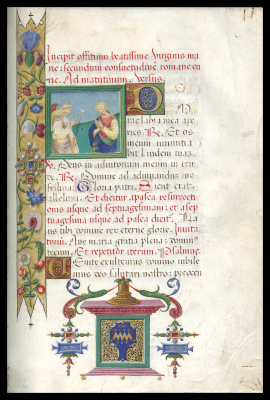 Incipit offitium beatissime virginis ma
rie secundum consuetudinẽ romane cu
rie. Ad matutinum. Versus.
D
ne labia mea ape
ries. R. Et os
meum nuntia
bit laudem tuaz
V. Deus in adiutorium meum in ten
de. R. Domine ad adiuvandum me
festina. Gloria patri. Sicut erat.
alleluia. Et dicitur a pasca resurrecti
onis usque ad septuagesimam: et a sep
tuagesima usque ad pasca dicit. Laus
tibi domine rex eterne glorie. Invita
torium. Ave maria gratia plena: dominus
tecum. Et repetitur iterum. Psalmus.
Venite exultemus domino iubile
mus deo salutari nostro: preoccu